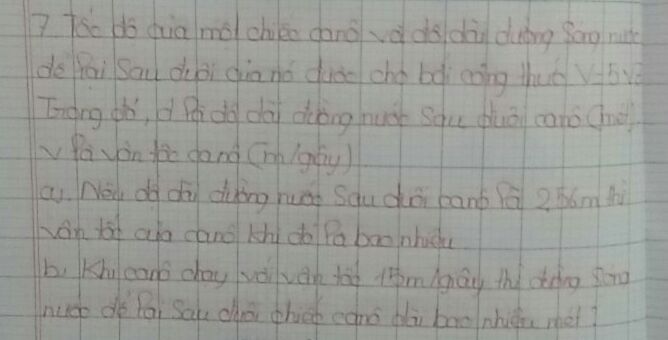 7 Tốc độ của một chiếc canô và độ dài đường sóng nước
để lại sau đuôi của nó được cho bởi công thức V=5√d
Trong đó, d là độ dài đường nước sau đuôi canô (mét)
v là vận tốc canô (m/giây)
a, Nếu độ dài đường nước sau đuôi canô là 256m thì
vận tốc của canô khi đó là bao nhiêu
b, Khi canô chạy với vận tốc m/giây thì đường sóng
nước để lại sau đuôi chiếc canô dài bao nhiêu mét?